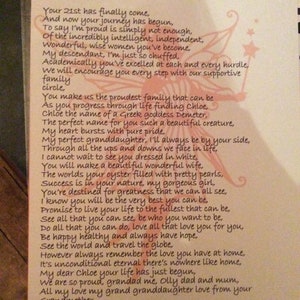 Your 21st has finally come,
And now your journey has begun,
To say I'm proud is simply not enough,
Of the incredibly intelligent, independent,
Wonderful, wise women you've become,
My descendant, I'm just so chuffed,
Academically you've excelled at each and every hurdle,
We will encourage you every step with our supportive
family
circle.
You make us the proudest family that can be
As you progress through life finding Chloe,
Chloe the name of a Greek goddess Demeter,
The perfect name for you such a beautiful creature,
My heart bursts with pure pride,
My perfect granddaughter, I'll always be by your side,
Through all the ups and downs we face in life,
I cannot wait to see you dressed in white,
You will make a beautiful wonderful wife,
The worlds your oyster filled with pretty pearls,
Success is in your nature, my gorgeous girl,
You're destined for greatness that we can all see,
I know you will be the very best you can be,
Promise to live your life to the fullest that can be,
See all that you can see, be who you want to be,
Do all that you can do, love all that love you for you,
Be happy healthy and always have hope,
See the world and travel the globe,
However always remember the love you have at home,
It's unconditional eternal there's nowhere like home,
My dear Chloe your life has just begun,
We are so proud, grandad me, Olly dad and mum,
All my love my grand granddaughter love from your